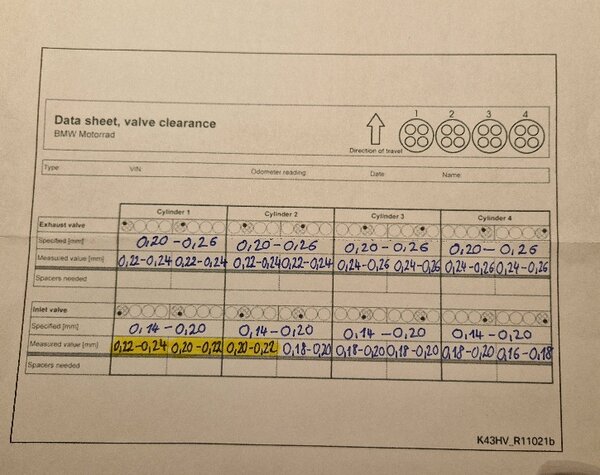 1 2 3 4
Data sheet, valve clearance
BMW Motorrad
Direction of travel
Type: VIN: Odometer reading Date: Name:
Cylinder 1 Cylinder 2 Cylinder 3 Cylinder 4
Exhaust valve
Specified [mm] 0,20-0,26 0,20-0,26 0,20-0,26 0,20-0,26
Measured value [mm] 0,22-0,24 0,22-0,24 0,22-0,24 0,22-0,24 0,24-0,26 0,24-0,26 0,24-0,26 0,24-0,26
Spacers needed
Inlet valve
Specified [mm] 0,14-0,20 0,14-0,20 0,14-0,20 0,14-0,20
Measured value [mm] 0,22-0,24 0,20-0,22 0,20-0,22 0,18-0,20 0,18-0,20 0,18-0,20 0,18-0,20 0,16-0,18
Spacers needed
K43HV_R11021b